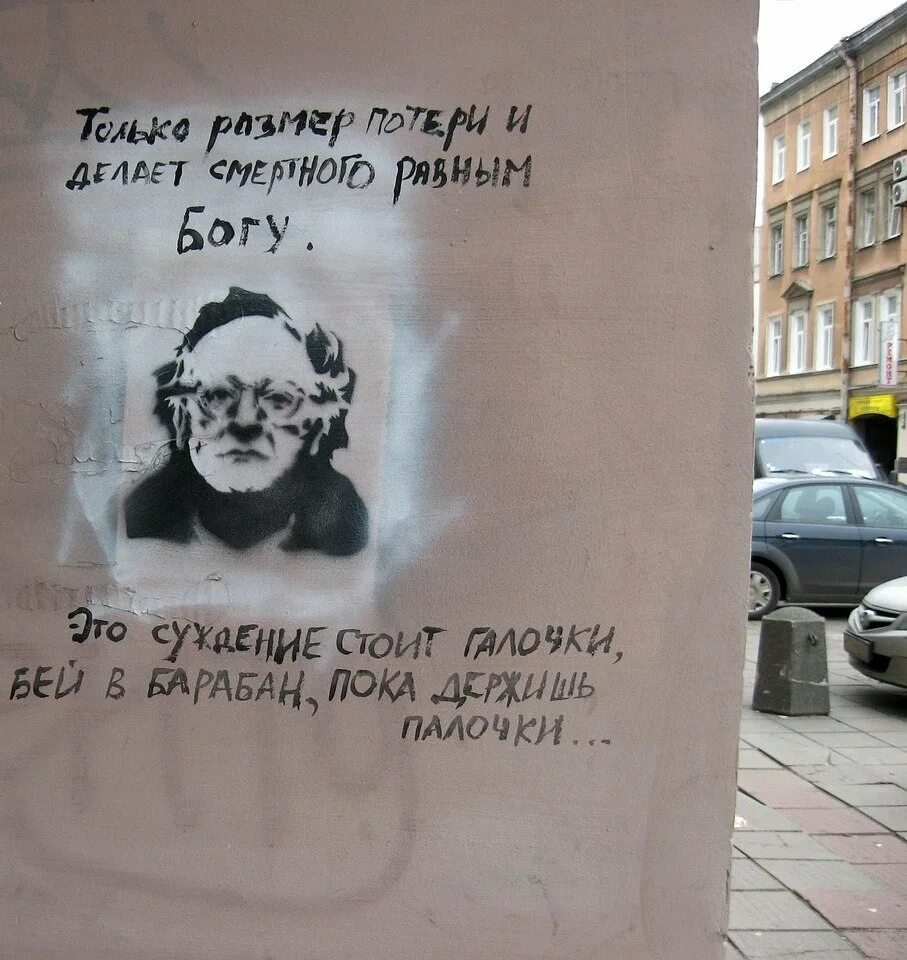 Только размер потери и
делает смертного равным
Богу.
Это суждение стоит галочки,
бей в барабан, пока держишь
палочки...
РЕМОНТ